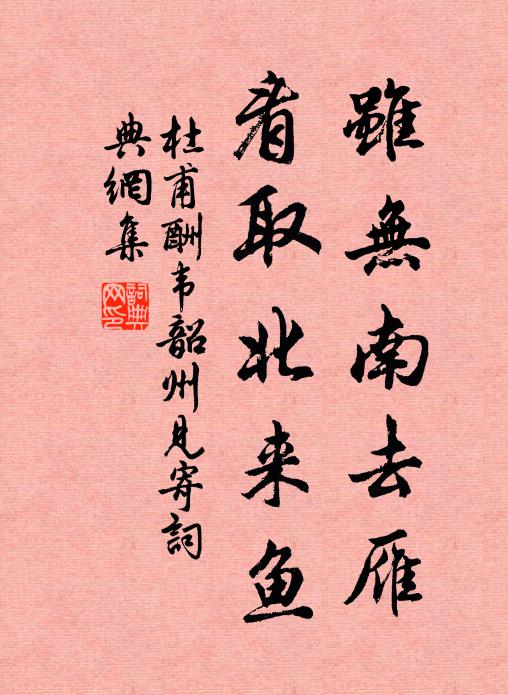 雖無南去雁
看取北来鱼
杜甫酬韦韶州见寄詞
典網集
詞典网印